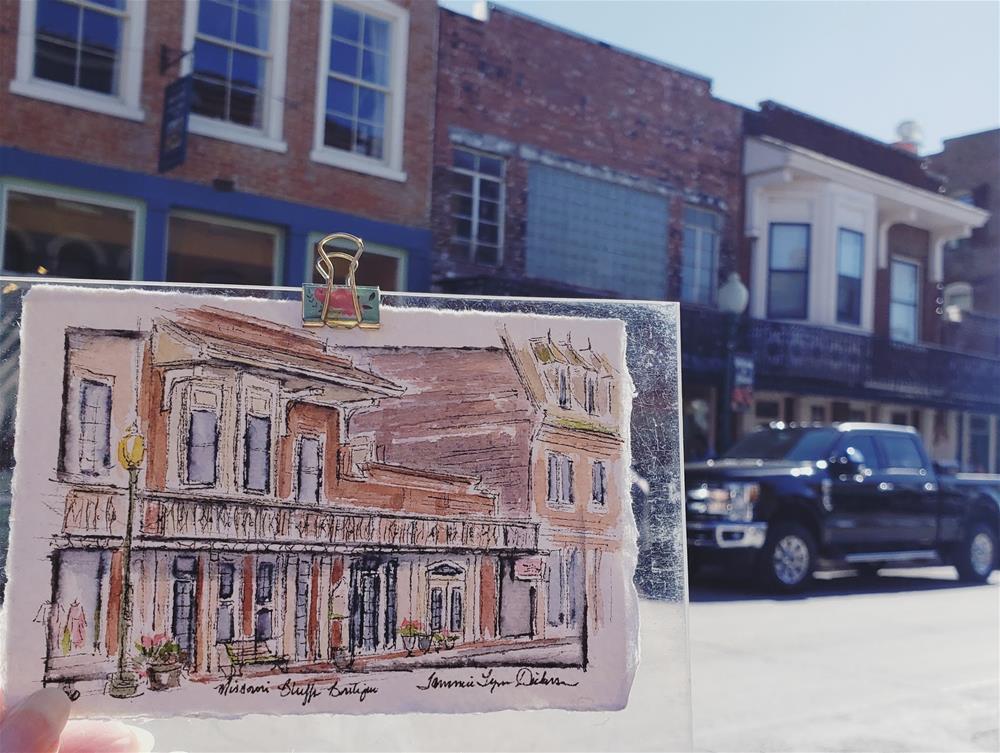 Missouri Bluffs Boutique Tammie Lynn Dickerson